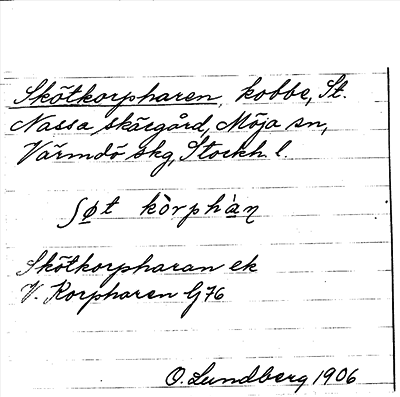 Skötkorpharen, kobbe, St.
Nassa skärgård, Möja sn,
Värmdö skg, Stockh. l.
ʃø̨t kòrphàn
Skötkorpharan ek
V. Korpharen G76
O. Lundberg 1906